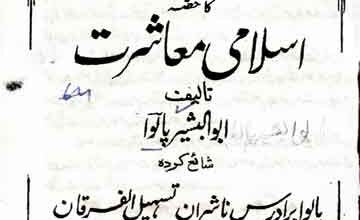 کا حصہ
اسلامی معاشرت
تالیف
ابوالبشیر پالوا
شائع کردہ
پالوا برادرس ناشران تسہیل الفرقان